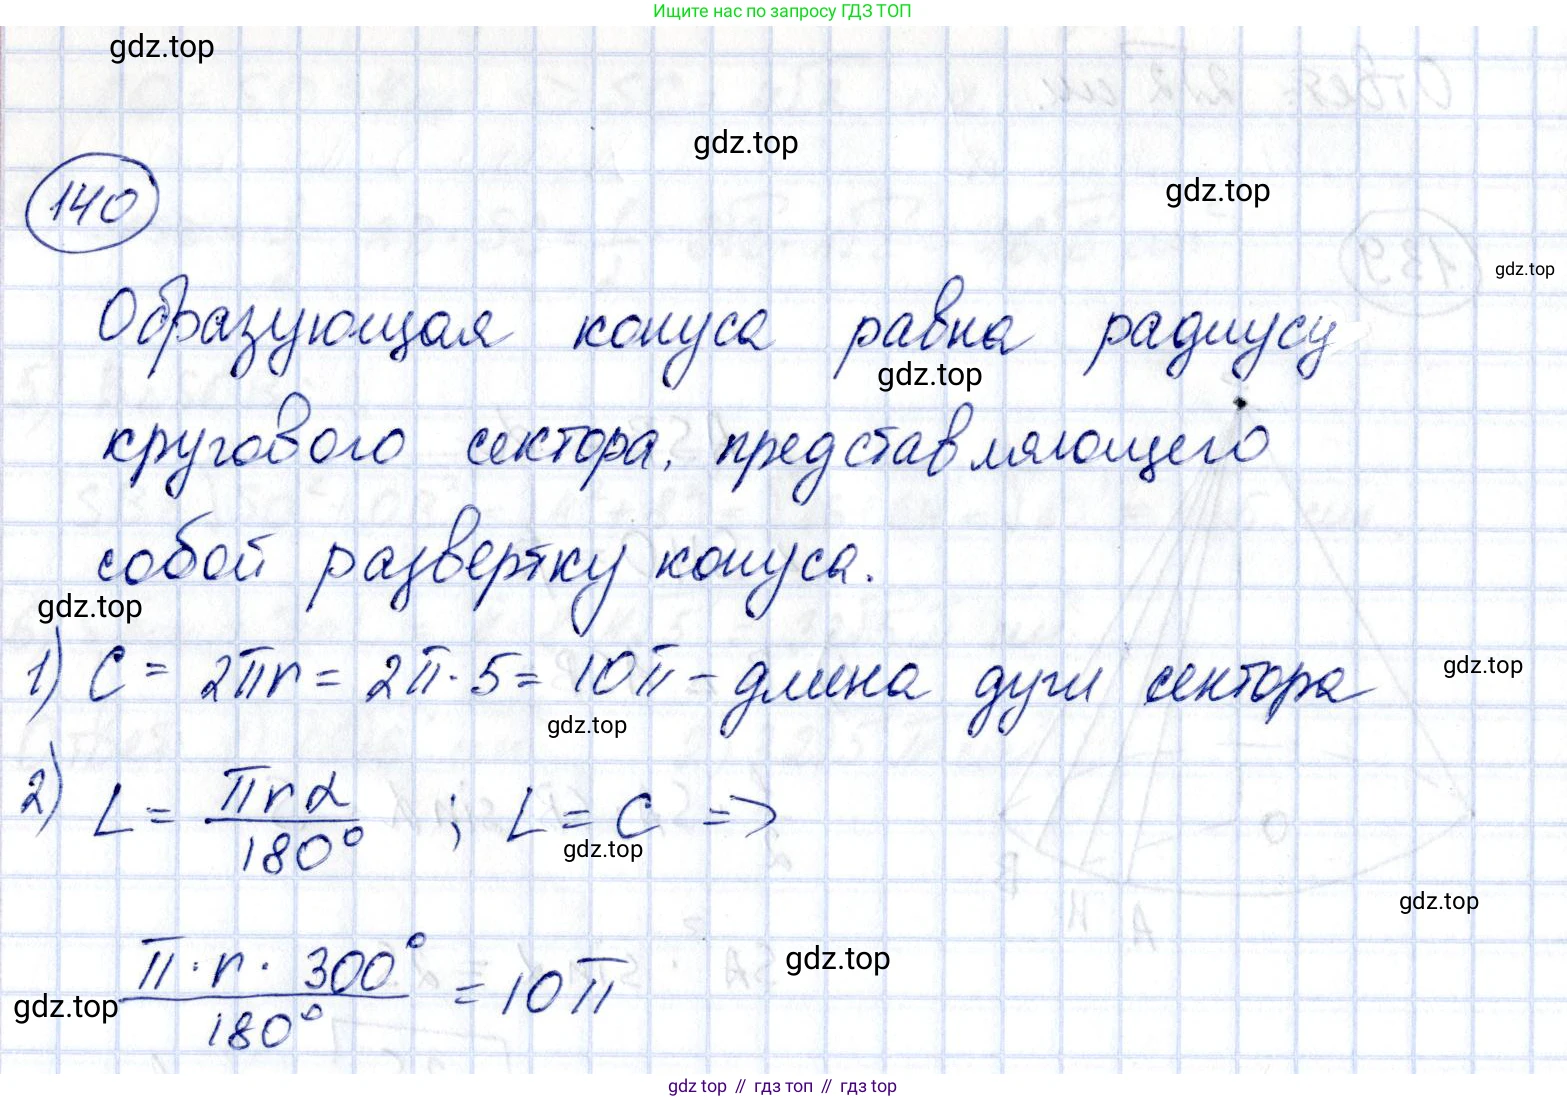 Ищите нас по запросу ГДЗ ТОП
gdz.top
gdz.top
gdz.top
140
gdz.top
Образующая конуса равна радиусу
gdz.top
кругового сектора, представляющего
собой развертку конуса.
gdz.top
1) C = 2πr = 2π · 5 = 10π – длина дуги сектора
gdz.top
gdz.top
2) L = πrα / 180° ; L = C =>
gdz.top
gdz.top
π · r · 300° / 180° = 10π
gdz.top
gdz.top
gdz top // гдз топ // gdz top